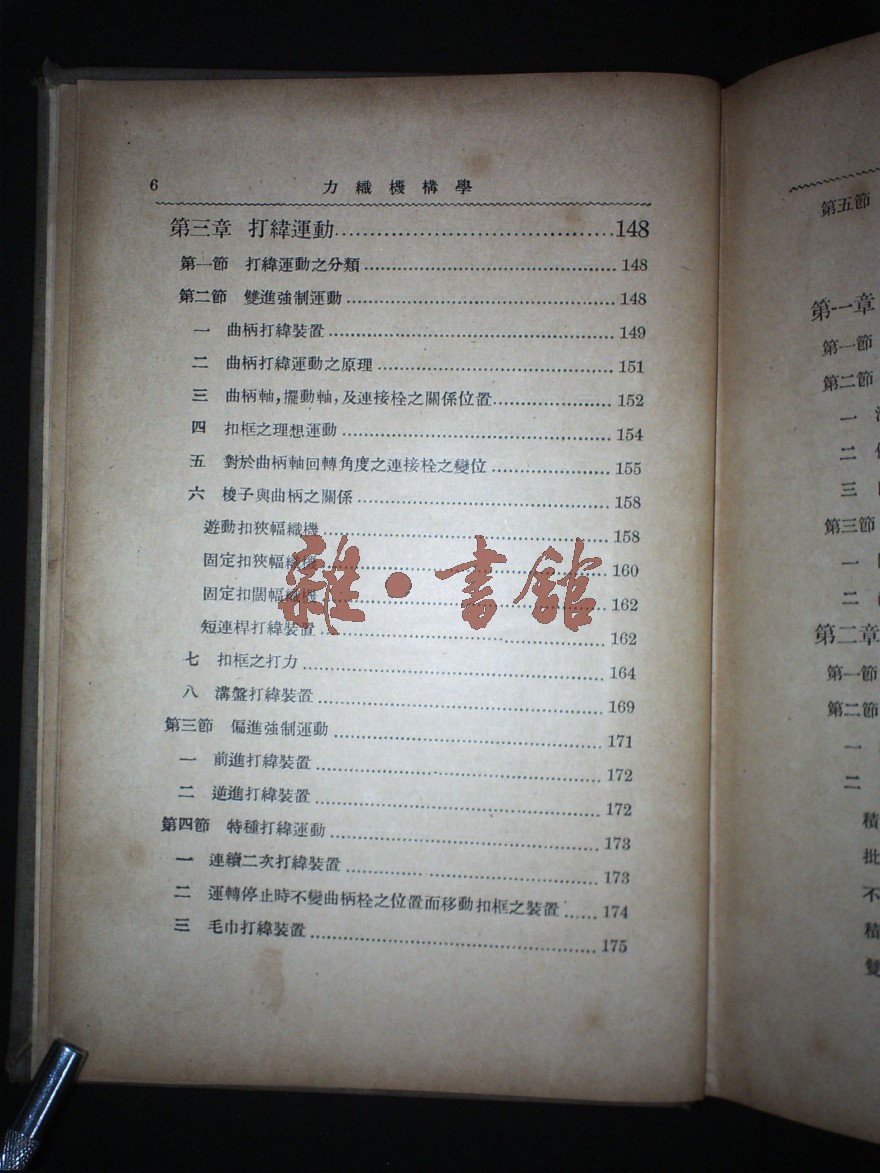 6 力織機構學
第三章 打緯運動......148
第一節 打緯運動之分類......148
第二節 雙進強制運動......148
一 曲柄打緯裝置......149
二 曲柄打緯運動之原理......151
三 曲柄軸,擺動軸,及連接栓之關係位置......152
四 扣框之理想運動......154
五 對於曲柄軸回轉角度之連接栓之變位......155
六 梭子與曲柄之關係......158
遊動扣狹幅織機......158
固定扣狹幅織機......160
固定扣闊幅織機......162
短連桿打緯裝置......162
七 扣框之打力......164
八 溝盤打緯裝置......169
第三節 偏進強制運動......171
一 前進打緯裝置......172
二 逆進打緯裝置......172
第四節 特種打緯運動......173
一 連續二次打緯裝置......173
二 運轉停止時不變曲柄栓之位置而移動扣框之裝置......174
三 毛巾打緯裝置......175
雜·書館
第五節
第一章
第一節
第二節
一
二
三
第三節
一
二
第二章
第一節
第二節
一
二
積
批
不
積
雙